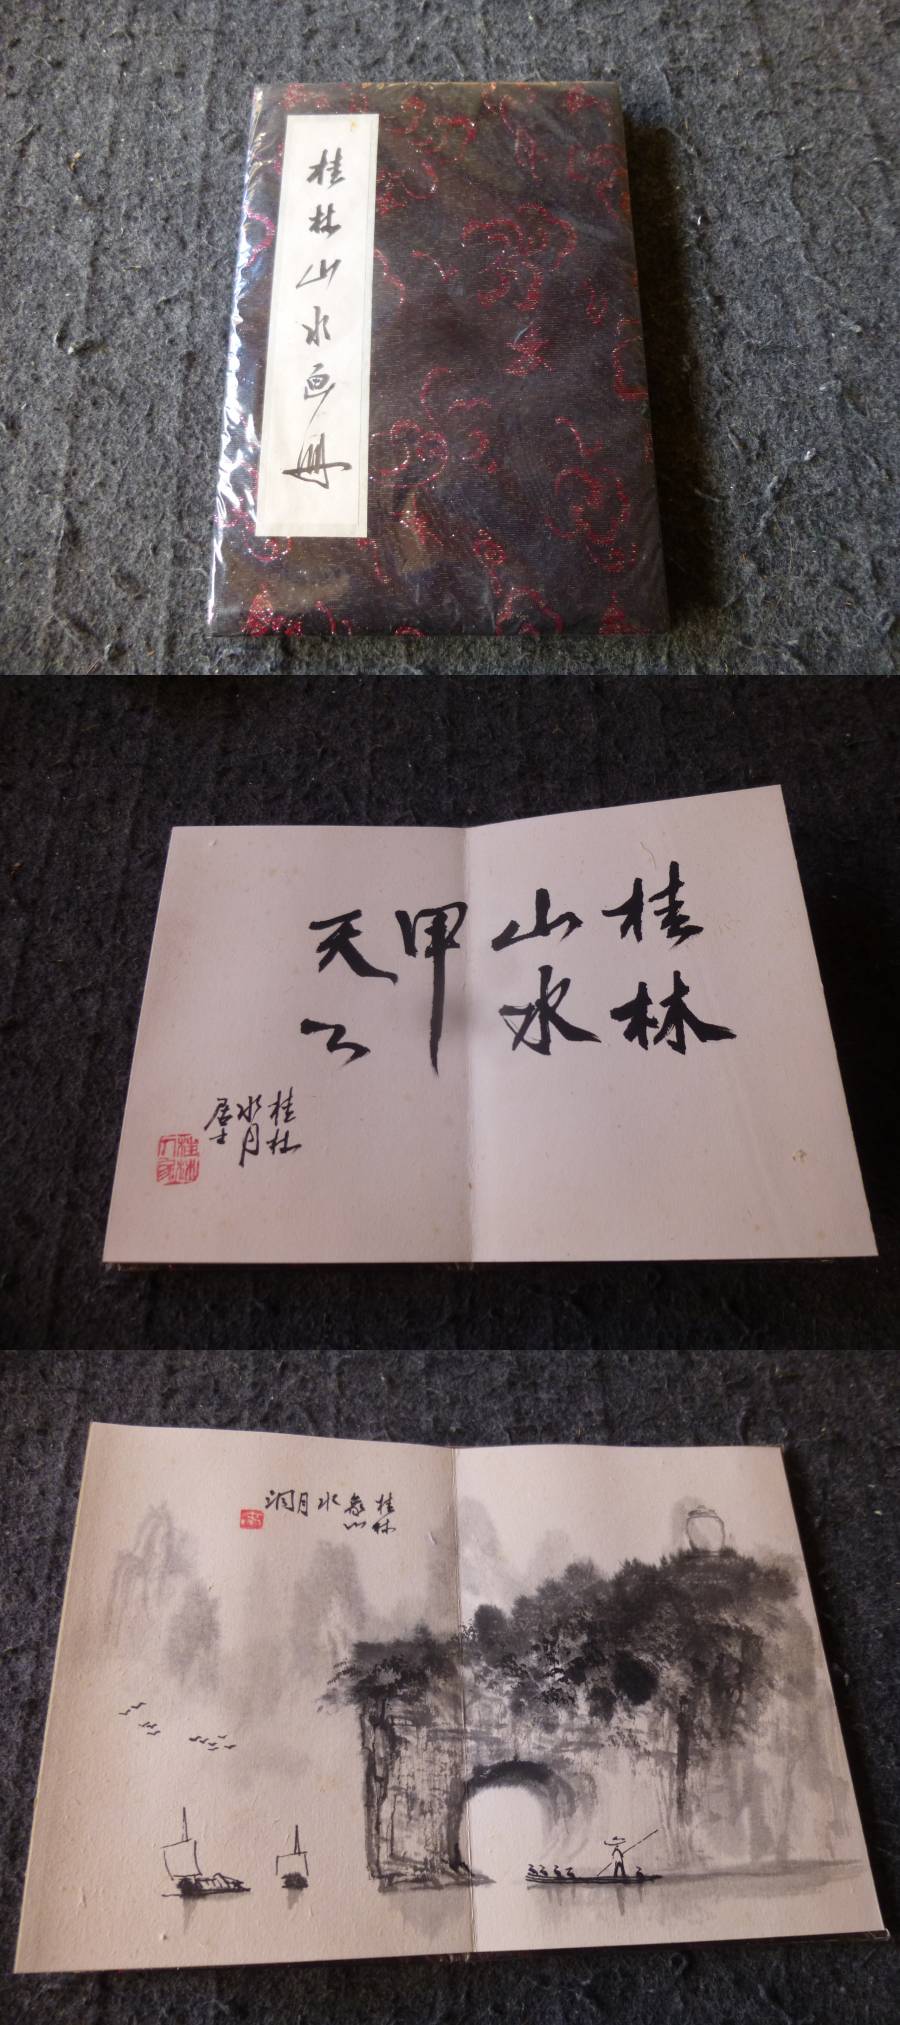 桂林山水画册
桂林
山水
甲
天下
桂林
水月
居士
桂林
象山
水月洞